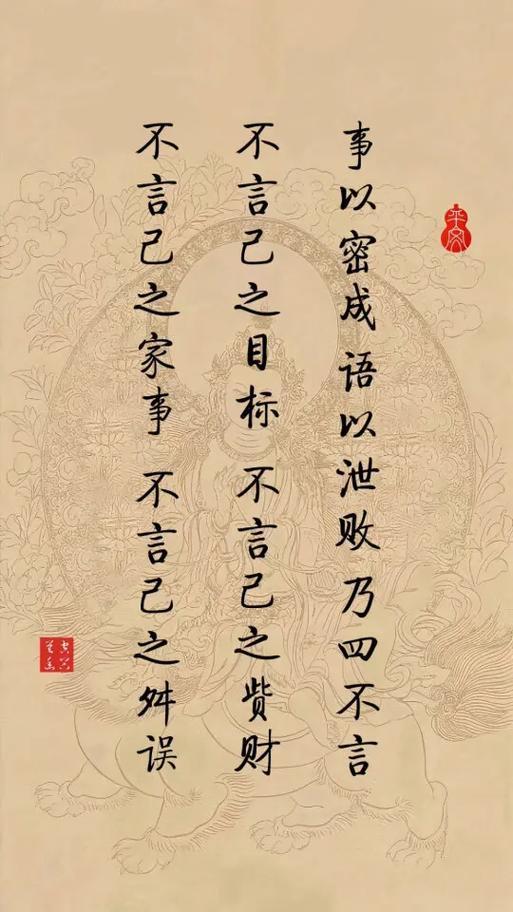 事以密成 语以泄败 乃四不言
不言己之目标 不言己之赀财
不言己之家事 不言己之舛误